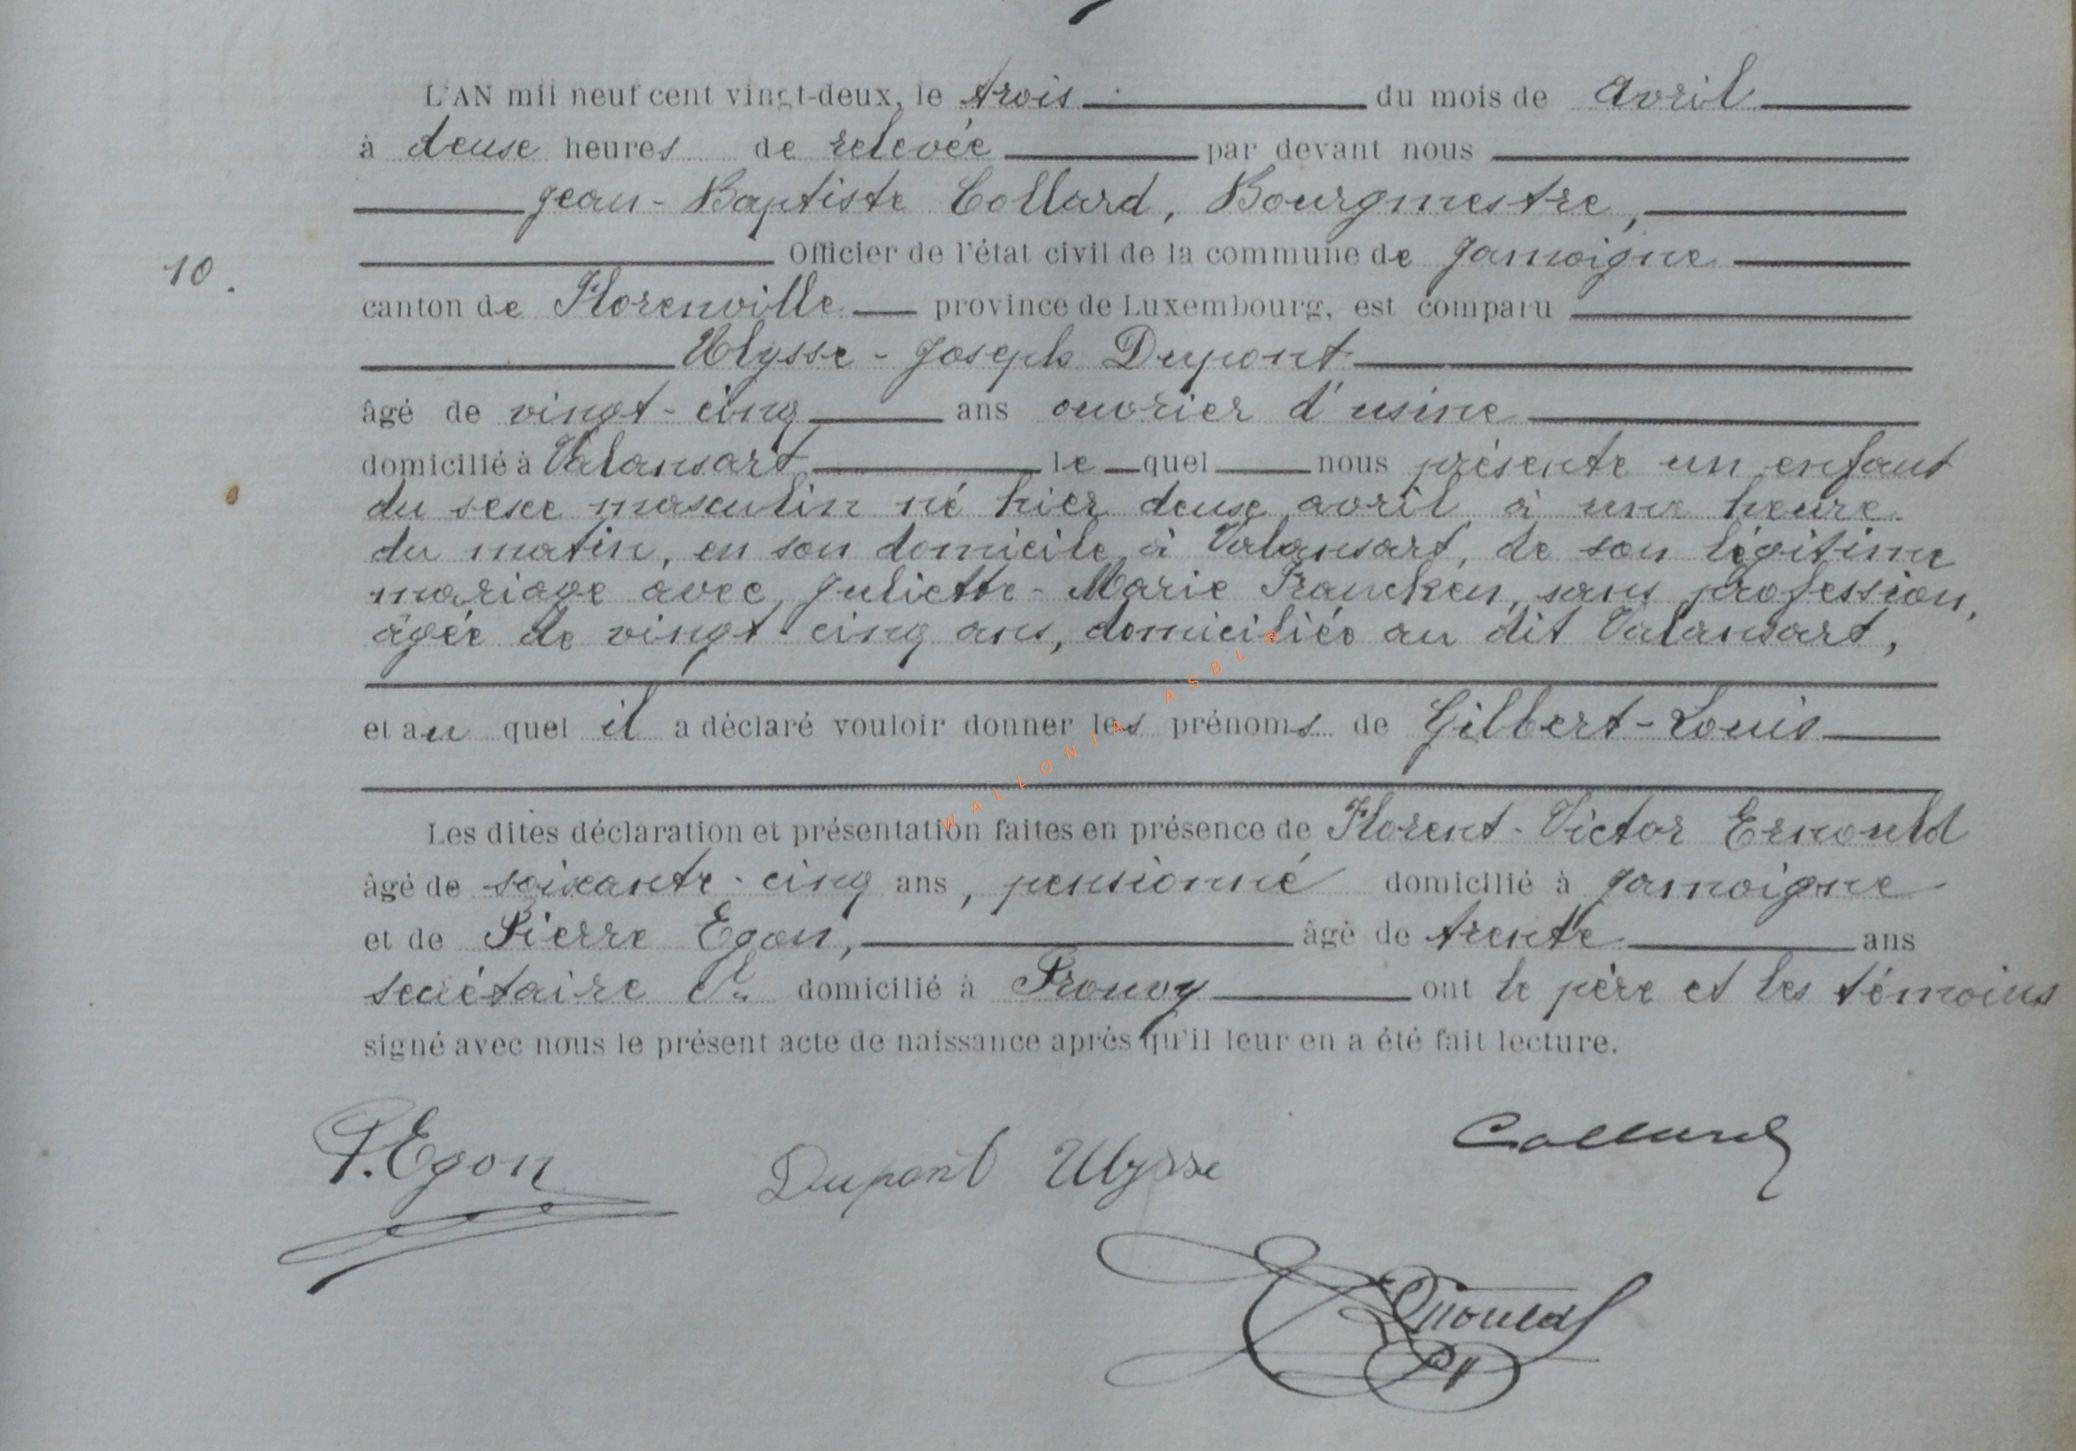 L'AN mil neuf cent vingt-deux, le trois du mois de avril
à deux heures de relevée par devant nous
Jean-Baptiste Collard, Bourgmestre,
10. Officier de l'état civil de la commune de Jamoigne
canton de Florenville province de Luxembourg, est comparu
Ulysse-Joseph Dupont
âgé de vingt-cinq ans ouvrier d'usine
domicilié à Valansart le quel nous présente un enfant
du sexe masculin né hier deux avril à une heure
du matin, en son domicile à Valansart, de son légitime
mariage avec Juliette-Marie Francken, sans profession,
âgée de vingt-cinq ans, domiciliée au dit Valansart,
et au quel il a déclaré vouloir donner les prénoms de Gilbert-Louis
Les dites déclaration et présentation faites en présence de Florent-Victor Ernould
âgé de soixante-cinq ans, pensionné domicilié à Jamoigne
et de Pierre Egon, âgé de trente ans
secrétaire Cl. domicilié à Prouvy ont le père et les témoins
signé avec nous le présent acte de naissance après qu'il leur en a été fait lecture.
P. Egon Dupont Ulysse Collard
Ernould
WALLONIA ASBL ©